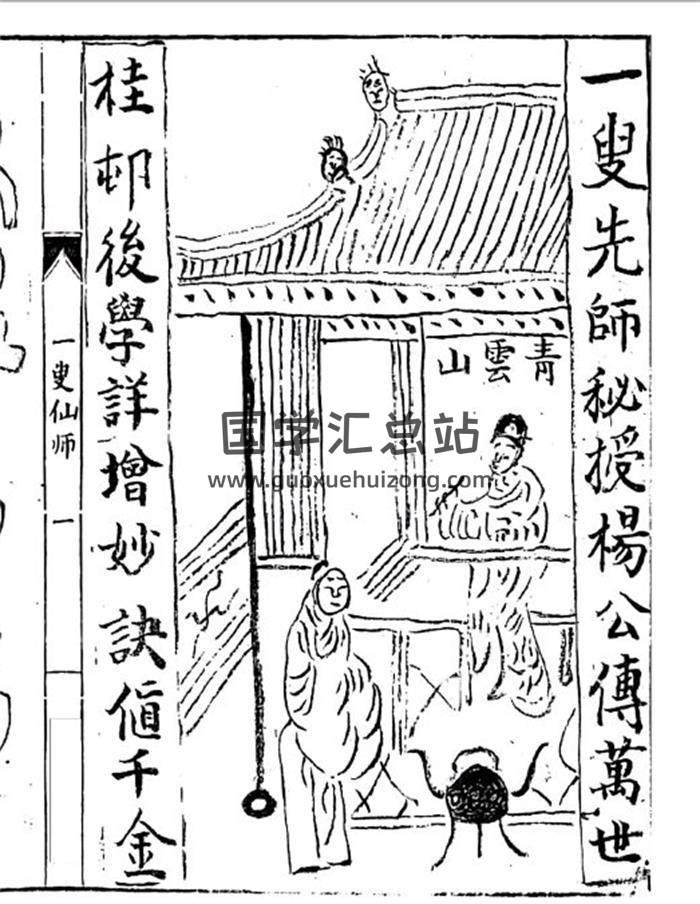 一叟先師秘授楊公傳萬世
青雲山
桂邨後學詳增妙訣值千金
一叟仙师
一
国学汇总站
www.guoxuehuizong.com